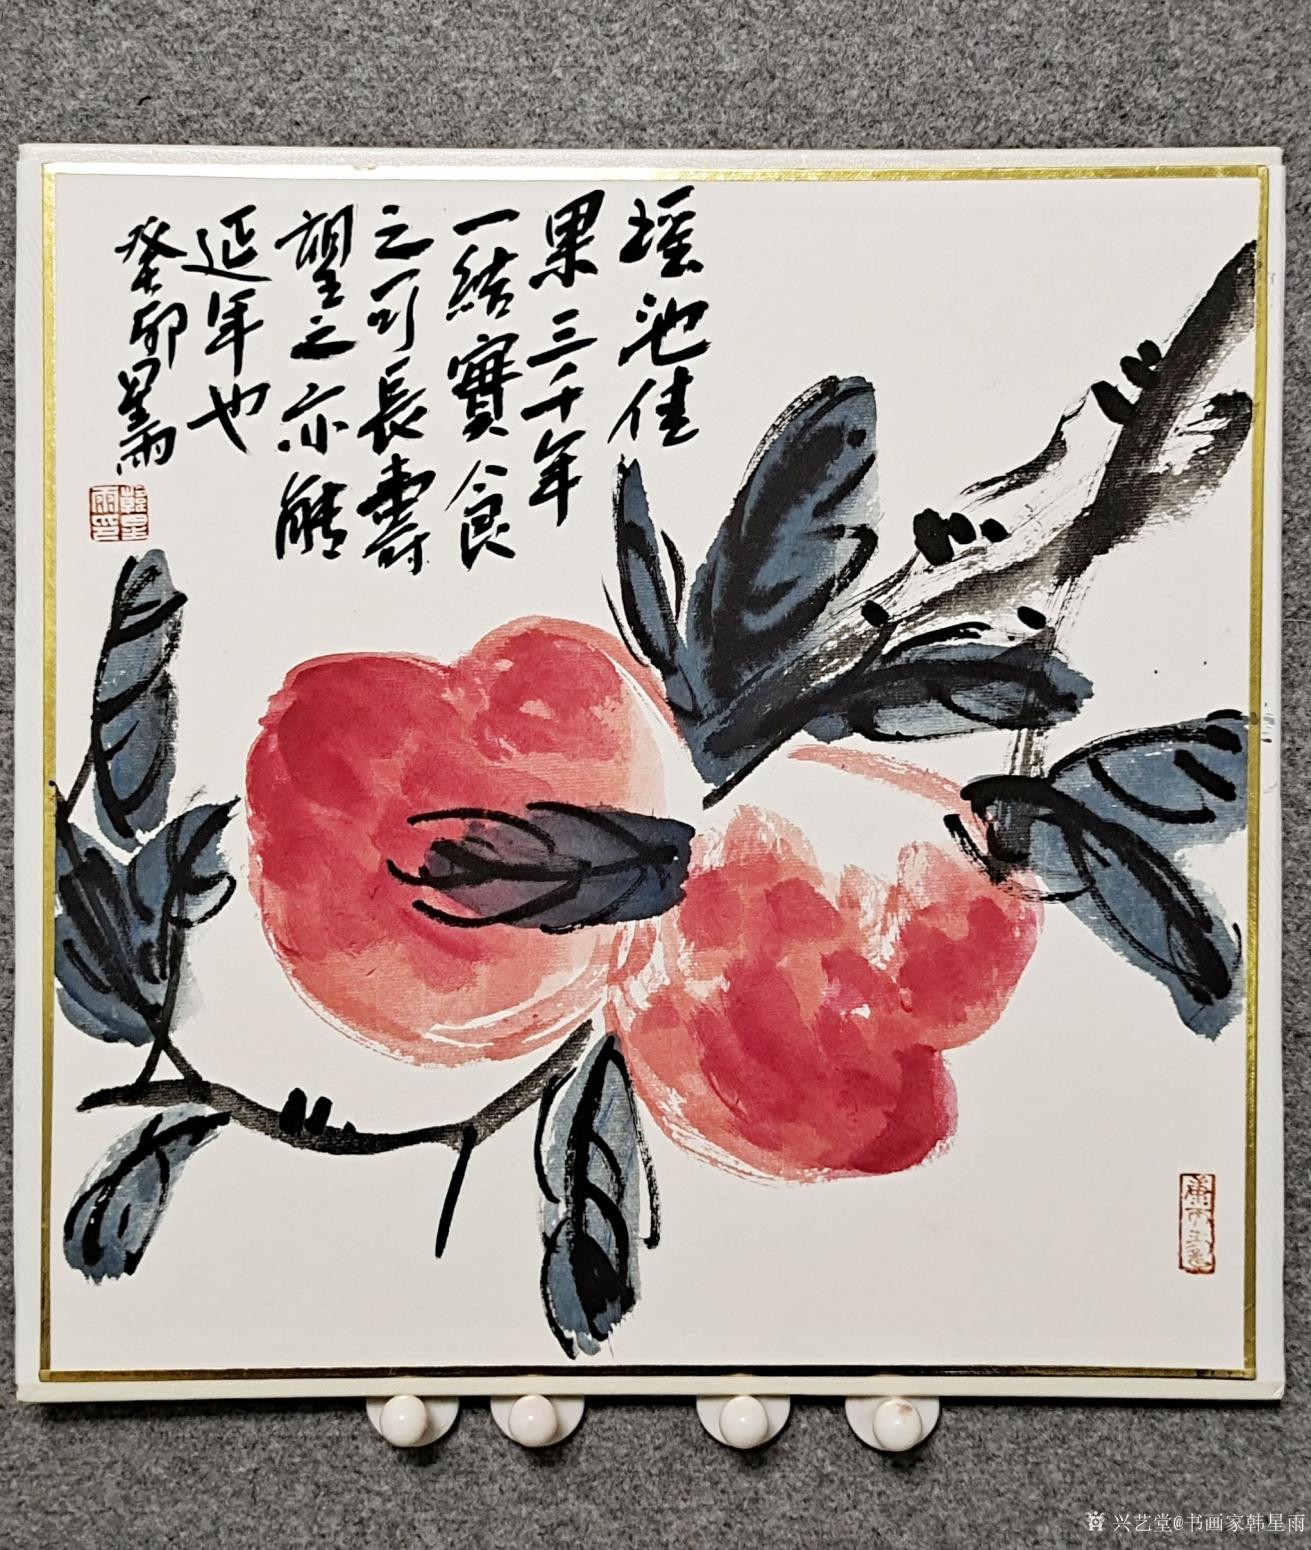 瑶池佳
果三千年
一結實食
之可長壽
望之亦能
延年也
癸卯星雨
韓星雨印
兴艺堂@书画家韩星雨